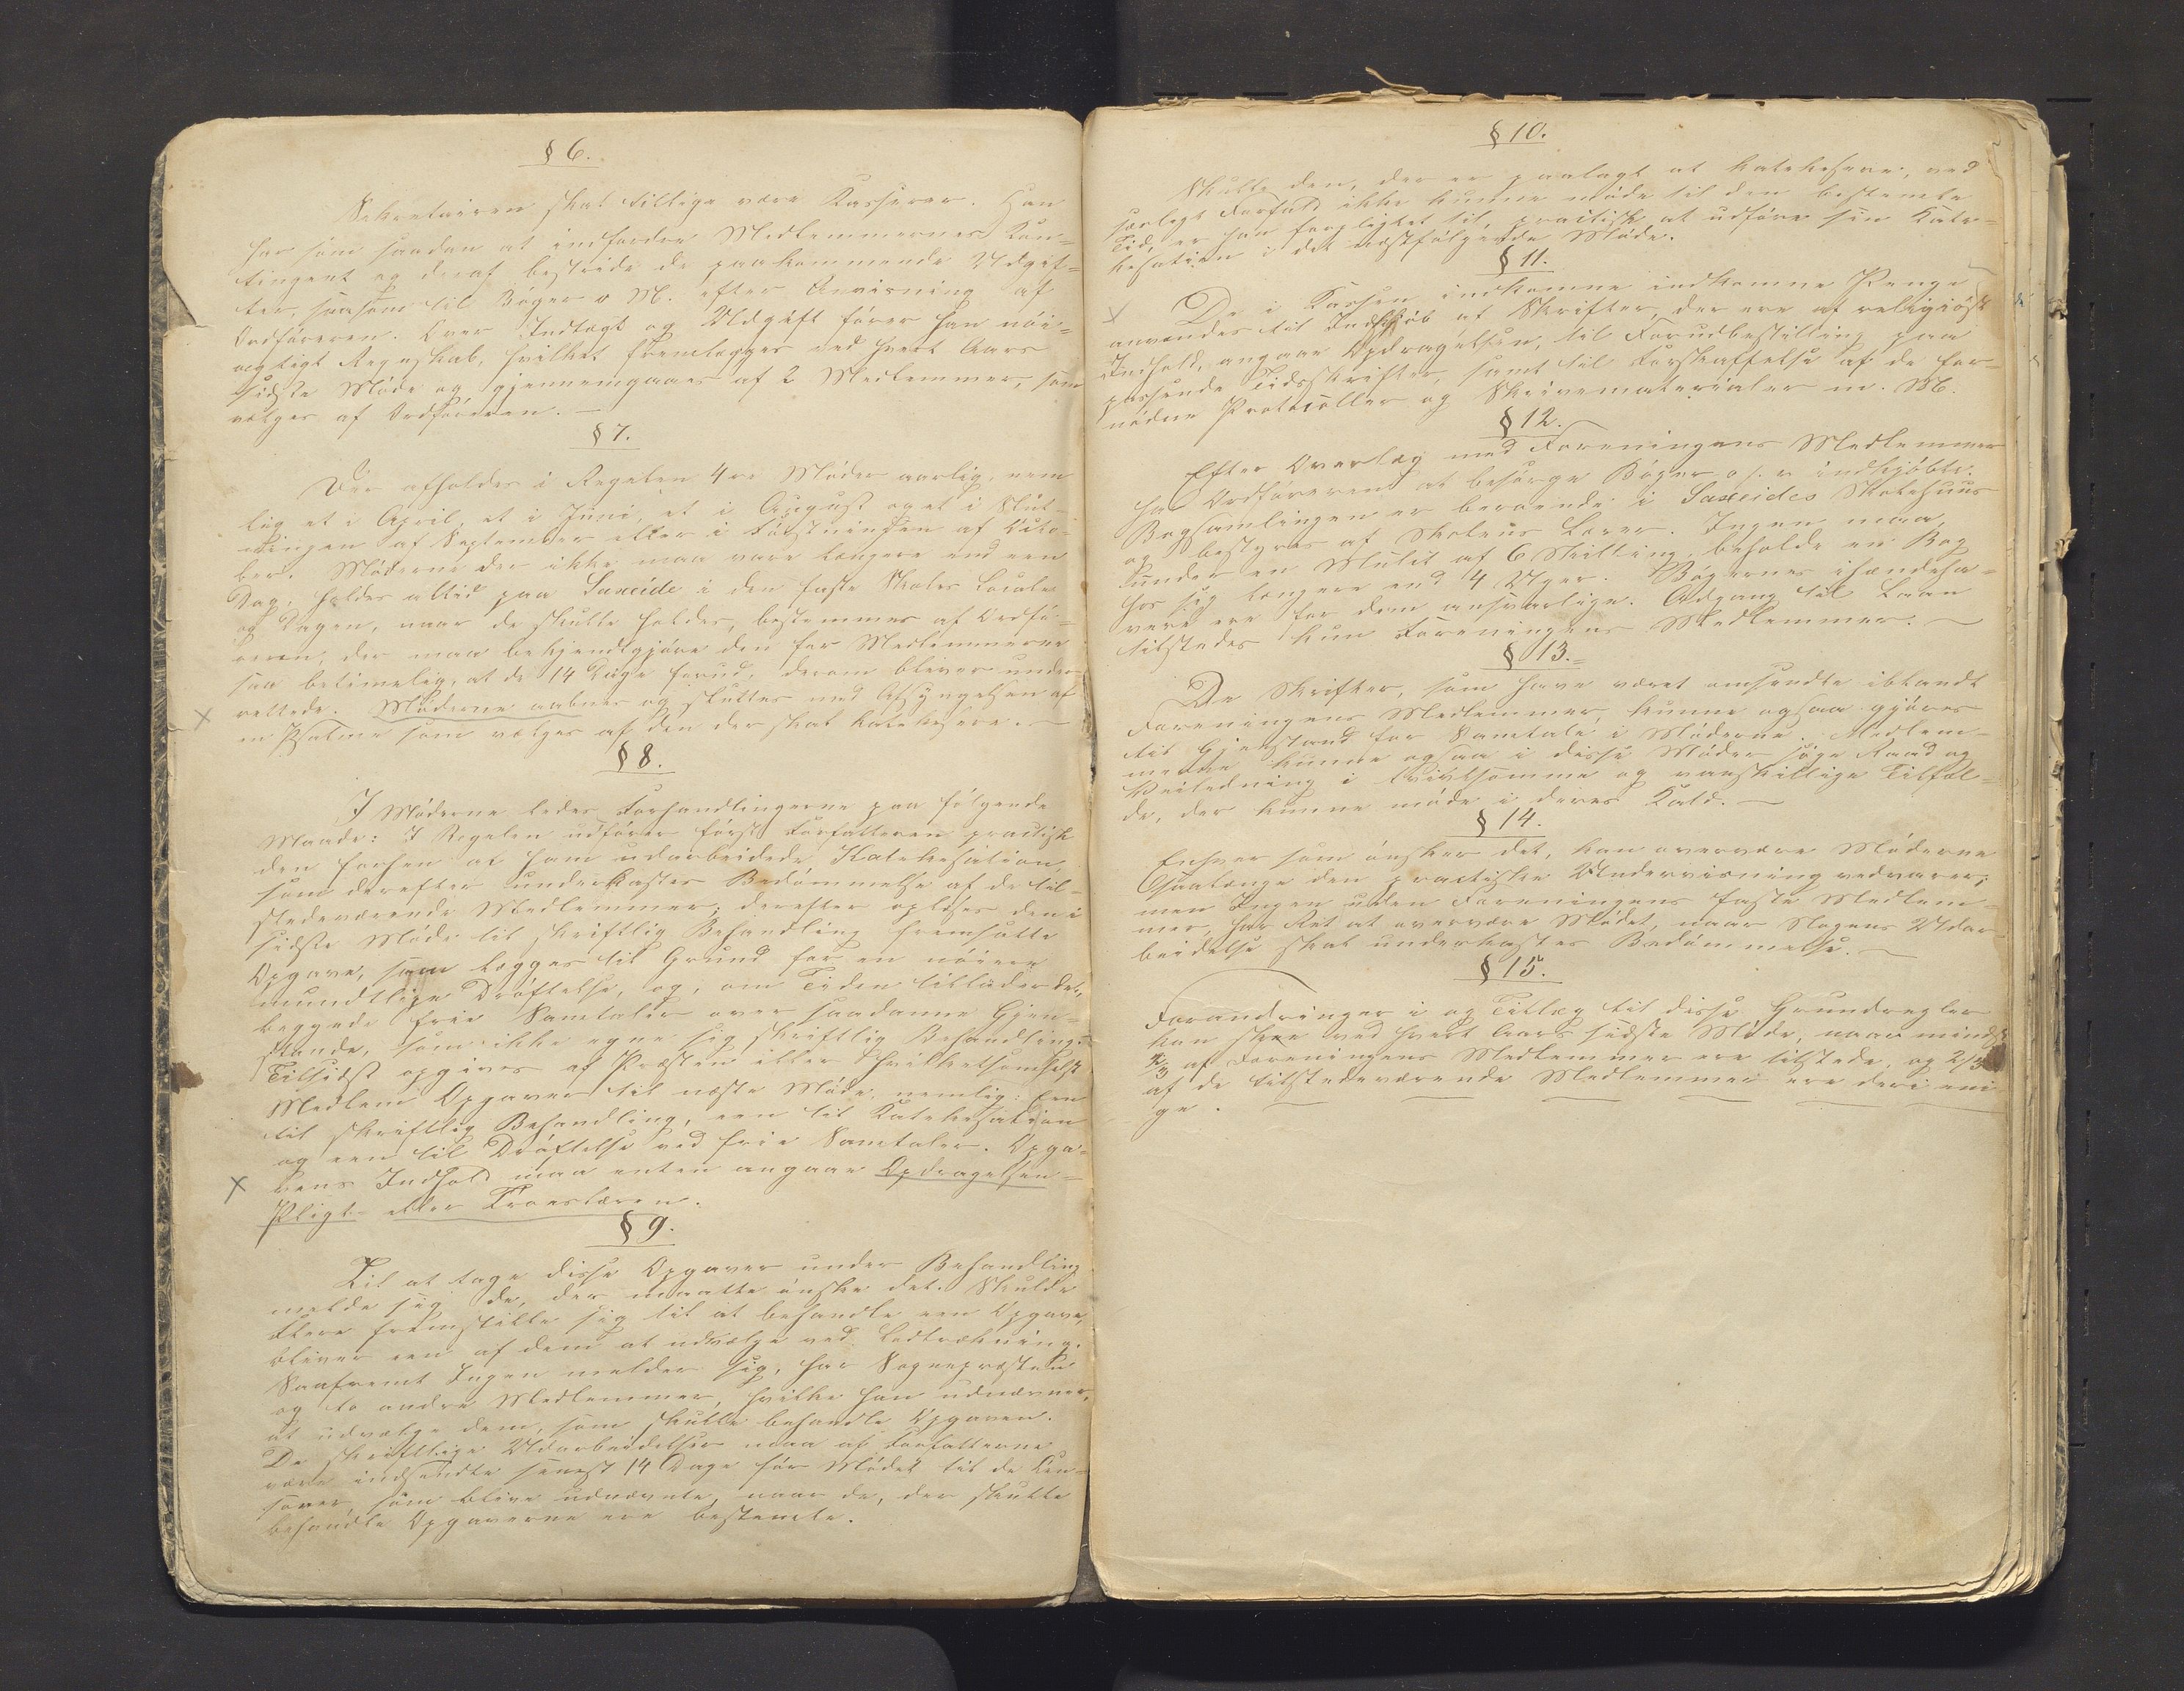 § 6.
Sekretairen skal tillige være Kasserer. Han
har som saadan at indfordre Medlemmernes Kon-
tingent og deraf bestride de paakommende Udgif-
ter, saasom til Bøger o. M. efter Anvisning af
Ordføreren. Over Indtægt og Udgift fører han nøi-
agtigt Regnskab, hvilket fremlægges ved hvert Aars
sidste Møde og gjennemgaaes af 2 Medlemmer, som
vælges af Ordføreren. —
§ 7.
Der afholdes i Regelen 4re Møder aarlig, nem
lig et i April, et i Juni, et i August og et i Slut-
ningen af September eller i Begyndelsen af Octo-
ber. Møderne der ikke maa vare længere end een
Dag, holdes altid paa Saxeide i den faste Skoles Locale
og Dagen, naar de skulle holdes, bestemmes af Ordfø-
reren, der maa bekjendtgjøre den for Medlemmerne
saa betimelig, at de 14 Dage forud, derom bliver under
rettede. Møderne aabnes og sluttes med Afsyngelsen af
en Psalme som vælges af den der skal katekesere. —
§ 8.
I Møderne ledes Forhandlingerne paa følgende
Maade: I Regelen udfører først Forfatteren practisk
den forhen af ham udarbeidede Katekesation
som derefter underkastes Bedømmelse af de til-
stedeværende Medlemmer; derefter oplæses den i
sidste Møde til skriftlig Behandling fremsatte
Opgave, som lægges til Grund for en nøiere
mundtlige Drøftelse, og, om Tiden tillader det,
begynde frie Samtaler over saadanne Gjen-
stande, som ikke egne sig skriftlig Behandling.
Tilsidst opgives af Præsten eller hvilketsomhelst
Medlem Opgaver til næste Møde, nemlig: Een
til skriftlig Behandling, een til Katekesation
og een til Drøftelse ved frie Samtaler. Opga-
vens Indhold maa enten angaae Opdragelsen-
Pligt- eller Troeslæren.
§ 9.
Til at tage disse Opgaver under Behandling
melde sig de, der maatte ønske det. Skulde
Flere fremstille sig til at behandle een Opgave,
bliver een af dem at udvælge ved Lodtrækning.
Saafremt Ingen melder sig, har Sognepræsten
og to andre Medlemmer, hvilke han udnævner,
at udvælge dem, som skulle behandle Opgaven.
De skriftlige Udarbeidelser maa af Forfatterne
være indsendte senest 14 Dage før Mødet til de Cen-
sorer, som blive udnævnte, naar de, der skulle
behandle Opgaverne ere bestemte.
§ 10.
Skulle den, der er paalagt at katekesere, ved
særlegt Forfald ikke kunne møde til den bestemte
Tid, er han forpligtet til, practisk at udføre sin Kate-
kesation i det næstfølgende Møde.
§ 11.
De i Kassen indkomne indkomne Penge
anvendes til Indkjøb af Skrifter, der ere af religiøst
Indhold, angaae Opdragelsen, til Forudbestilling paa
passende Tidsskrifter, samt til Forskaffelse af de for-
nødne Protocoller og Skrivematerialer m. M.
§ 12.
Efter Overlæg med Foreningens Medlemmer
har Ordføreren at besørge Bøger o. s. v. indkjøbte.
Bogsamlingen er beroende i Saxeides Skolehuus
og bestyres af Skolens Lærer. Ingen maa,
under en Mulct af 6 Skilling, beholde en Bog
hos sig længere end 4 Uger. Bøgernes ihændeha-
vere ere for dem ansvarlige. Adgang til Laan
tilstedes kun Foreningens Medlemmer. —
§ 13.
De Skrifter, som have været omsendte iblandt
Foreningens Medlemmer, kunne ogsaa gjøres
til Gjenstand for Samtale i Møderne. Medlem-
merne kunne ogsaa i disse Møder søge Raad og
Veiledning i tvivlsomme og vanskillige Tilfæl-
de, der kunne møde i deres Kald. —
§ 14.
Enhver som ønsker det, kan overvære Møderne
saalænge den practiske Undervisning vedvarer;
men Ingen uden Foreningens faste Medlem-
mer, har Ret at overvære Mødet, naar Nogens Udar
beidelse skal underkastes Bedømmelse. —
§ 15.
Forandringer i og Tillæg til disse Grundregler
kan skee ved hvert Aars sidste Møde, naar mindst
2/3 af Foreningens Medlemmer ere tilstede, og 2/3
af de tilstedeværende Medlemmer ere deri eni
ge.